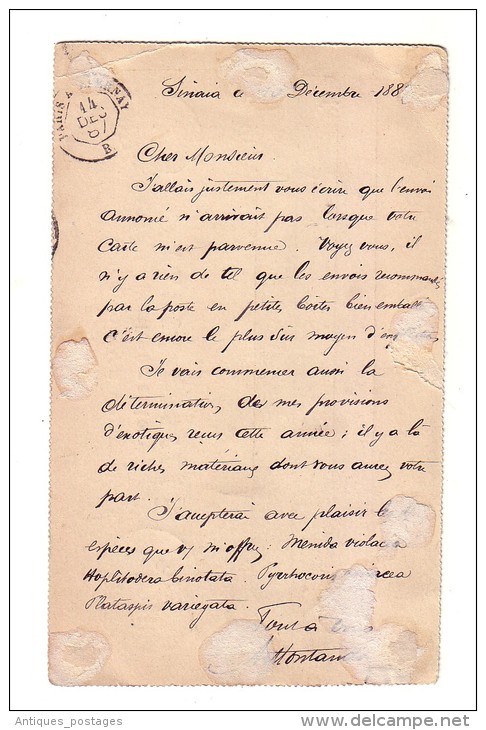 PARIS
14
DEC
87
Sinaia ce Décembre 188
Cher Monsieur
J'allais justement vous écrire que l'envoi
annoncé n'arrivait pas lorsque votre
Carte m'est parvenue. Voyez vous, il
n'y a rien de tel que les envois recommandés
par la poste en petites boîtes bien emballé
c'est encore le plus sûr moyen
Je vais commencer aussi la
détermination des mes provisions
d'exotiques reçus cette année; il y a là
de riches matériaux dont vous aurez votre
part.
J'accepterai avec plaisir le
espèces que vs m'offrez: Menida violacea
Hoplitodera binotata. Pyrrhocoris
Plataspis variegata.
Tout à
Montand
Antiques_postages
www.delcampe.net